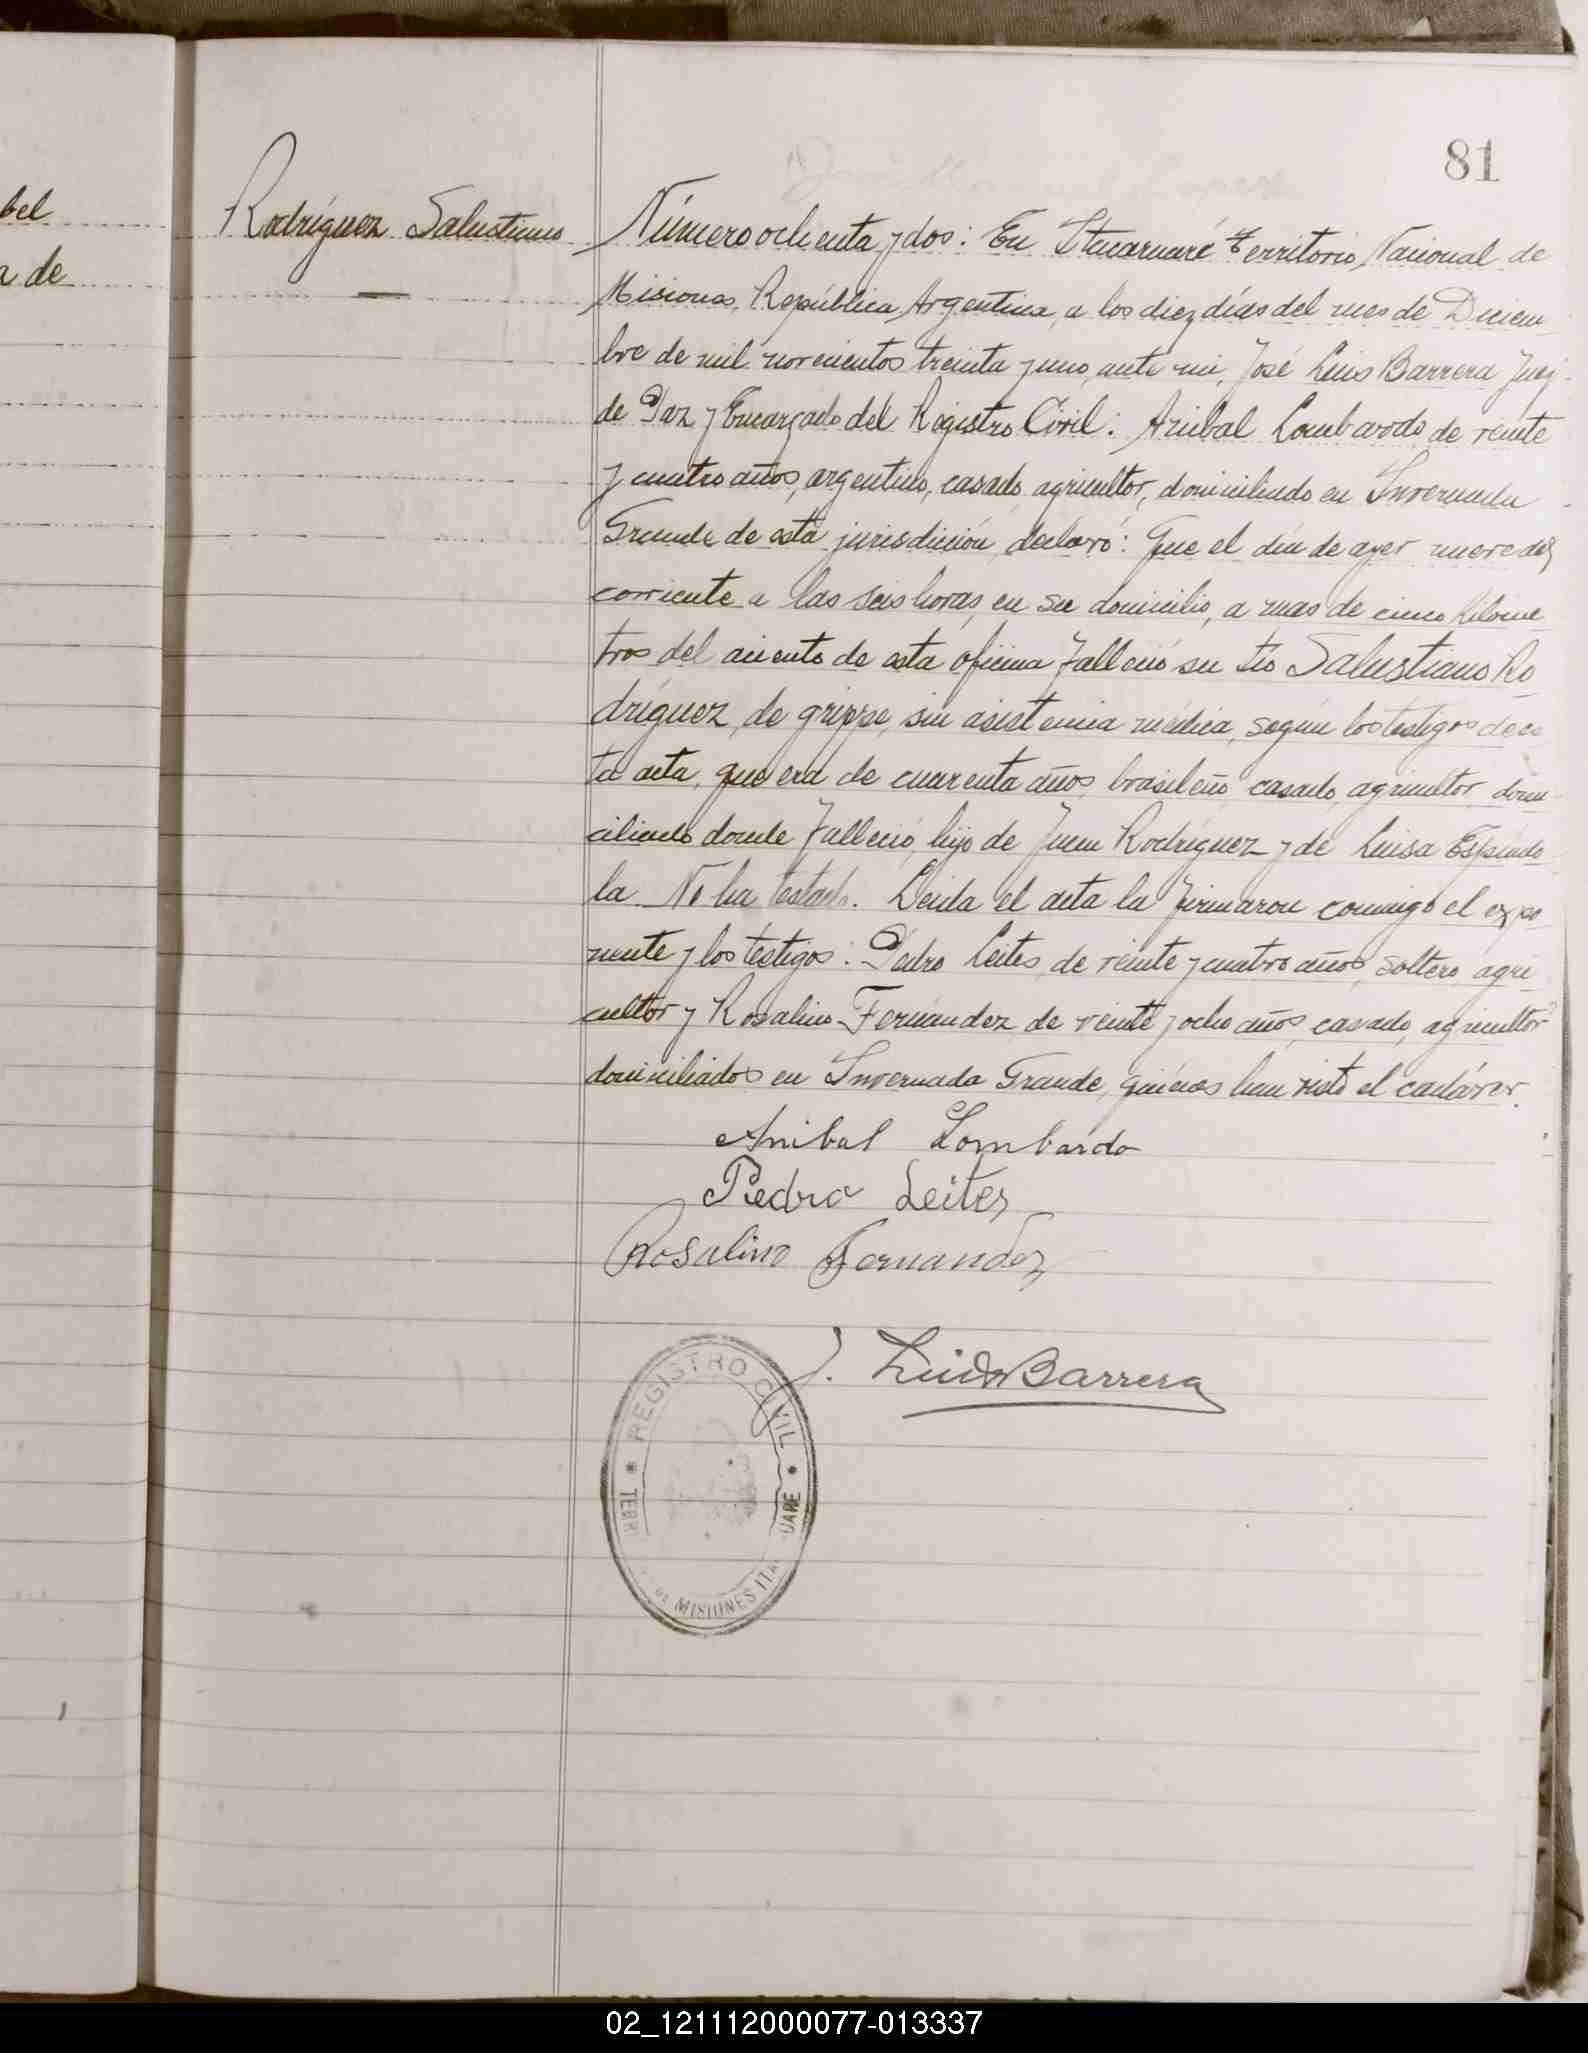 bel
a de
81
Rodríguez Salustiano
Número ochenta y dos: En Itacaruaré Territorio Nacional de
Misiones, República Argentina, a los diez días del mes de Diciem
bre de mil novecientos treinta y uno, ante mi, José Luis Barrera Juez
de Paz y Encargado del Registro Civil: Anibal Lombardo de veinte
y cuatro años, argentino, casado, agricultor, domiciliado en Invernada
Grande de esta jurisdicción, declaró: Que el día de ayer nueve del
corriente a las seis horas, en su domicilio, a mas de cinco kilóme
tros del aciento de esta oficina falleció su tío Salustiano Ro
dríguez, de grippe, sin asistencia médica, según los testigos de es
ta acta, que era de cuarenta años, brasileño, casado, agricultor, domi
ciliado donde falleció, hijo de Juan Rodríguez y de Luisa Espíndo
la. No ha testado. Leida el acta la firmaron conmigo el expo
nente y los testigos: Pedro Leites, de veinte y cuatro años, soltero, agri
cultor y Rosalino Fernández, de veinte y ocho años, casado, agricultor
domiciliados en Invernada Grande, quiénes han visto el cadáver.
Anibal Lombardo
Pedro Leites
Rosalino Fernandez
J. Luis Barrera
REGISTRO CIVIL
TERR
DE MISIONES ITA UARE
02_121112000077-013337